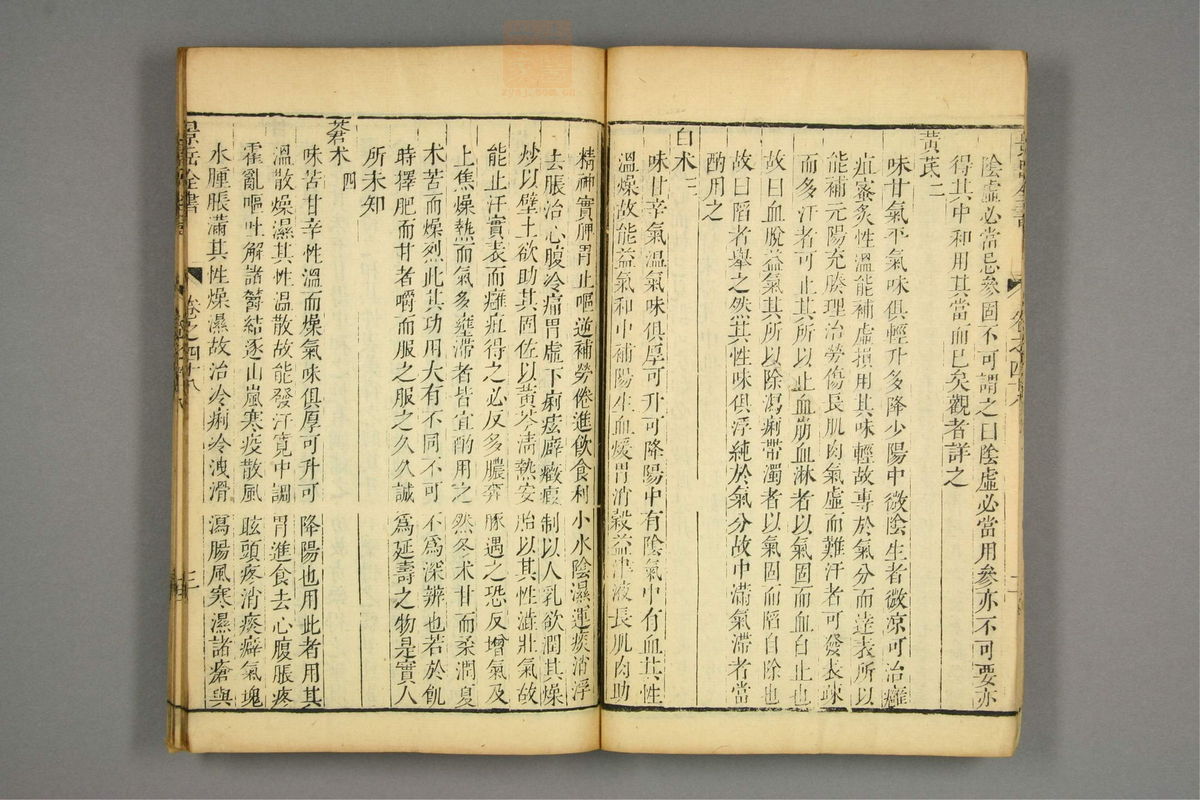 陰虛必當忌參固不可謂之曰陰虛必當用參亦不可要亦
得其中和用其當而已矣觀者詳之
黃芪二
味甘氣平氣味俱輕升多降少陽中微陰生者微涼可治癰
疽蜜炙性溫能補虛損用其味輕故專於氣分而達表所以
能補元陽充腠理治勞傷長肌肉氣虛而難汗者可發表疎
而多汗者可止其所以止血崩血淋者以氣固而血自止也
故曰血脫益氣其所以除瀉痢帶濁者以氣固而陷自除也
故曰陷者舉之然其性味俱浮純於氣分故中滿氣滯者當
酌用之
白朮三
味甘辛氣溫氣味俱厚可升可降陽中有陰氣中有血其性
溫燥故能益氣和中補陽生血煖胃消穀益津液長肌肉助
精神實脾胃止嘔逆補勞倦進飲食利小水除濕運痰消浮
去脹治心腹冷痛胃虛下痢痃癖癥瘕制以人乳欲潤其燥
炒以壁土欲助其固佐以黃芩清熱安胎以其性澁壯氣故
能止汗實表而癰疽得之必反多膿奔豚遇之恐反增氣及
上焦燥熱而氣多壅滯者皆宜酌用之然冬朮甘而柔潤夏
朮苦而燥烈此其功用大有不同不可不為深辨也若於飢
時擇肥而甘者嚼而服之服之久久誠為延壽之物是實人
所未知
蒼朮四
味苦甘辛性溫而燥氣味俱厚可升可降陽也用此者用其
溫散燥濕其性温散故能發汗寬中調胃進食去心腹脹疼
霍亂嘔吐解諸鬱結逐山嵐寒疫散風眩頭疼消痰癖氣塊
水腫脹滿其性燥濕故治冷痢冷洩滑瀉腸風寒濕諸瘡與
景岳全書
卷之四十八
三